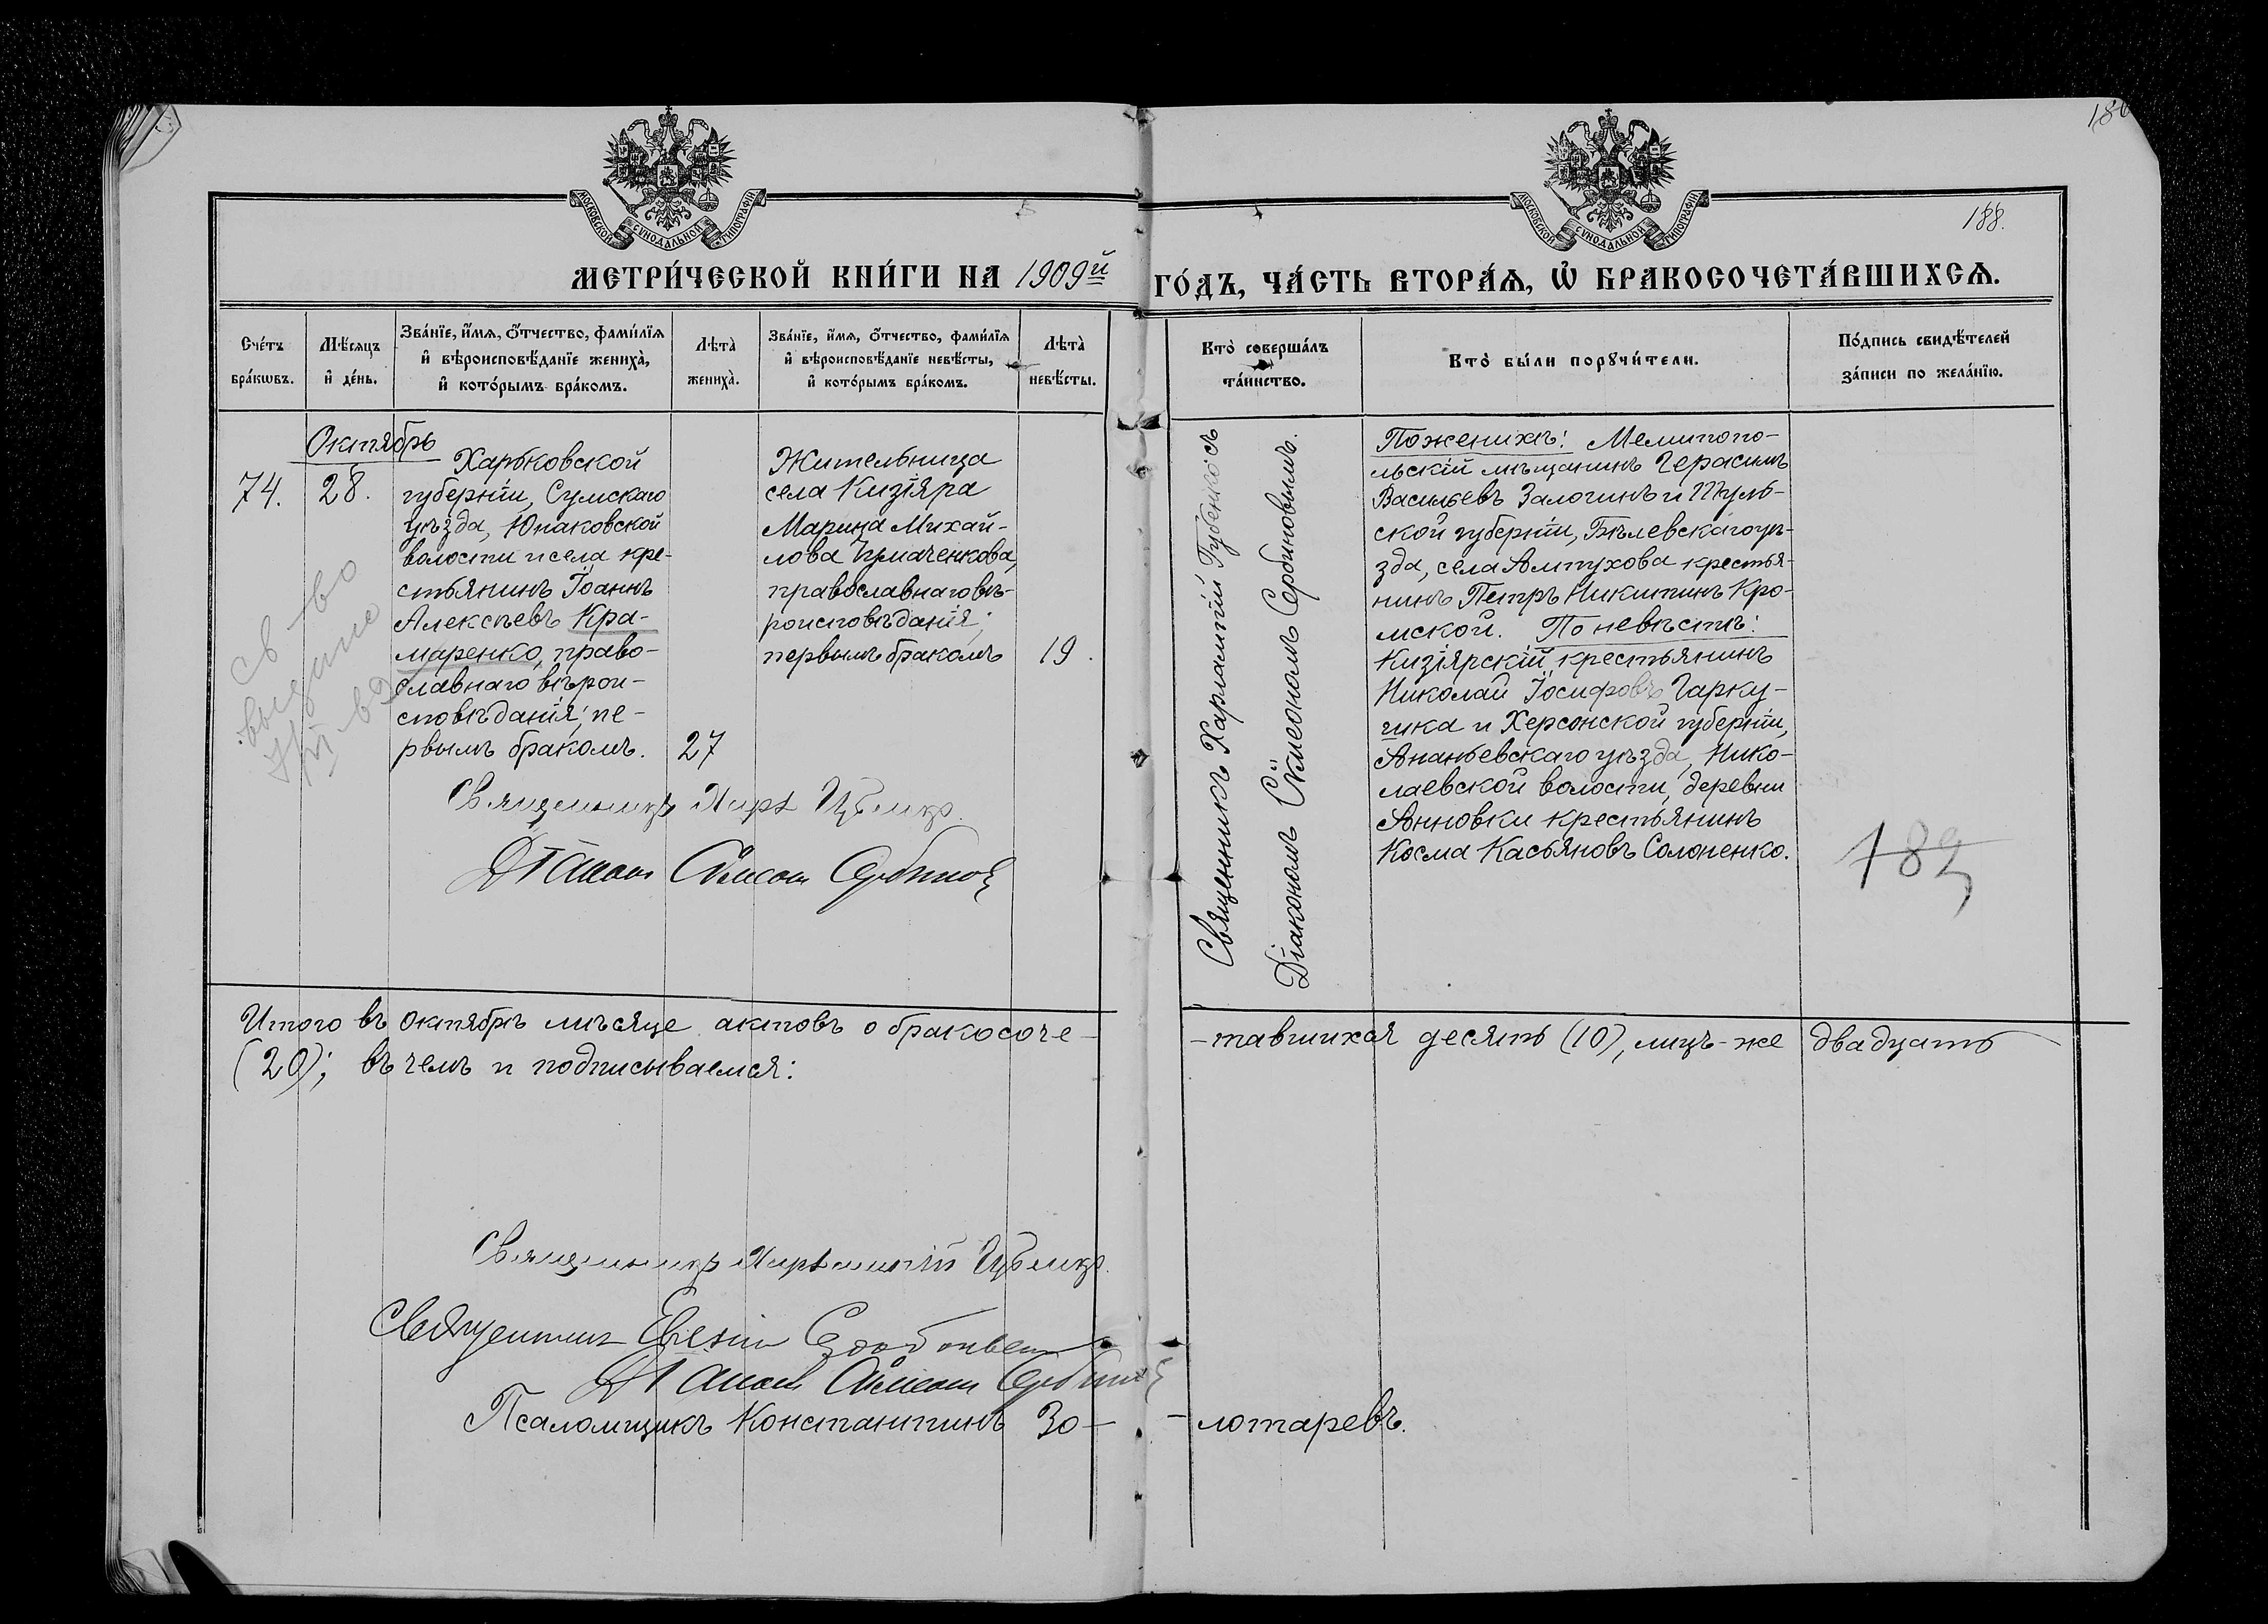 186
МОСКОВСКОЙ СѴНОДАЛЬНОЙ ТИПОГРАФІИ
МОСКОВСКОЙ СѴНОДАЛЬНОЙ ТИПОГРАФІИ
188.
МЕТРИ́ЧЕСКОЙ КНИ́ГИ НА 1909й ГО́ДЪ, ЧА́СТЬ ВТОРА́Ѧ, Ѡ҆ БРАКОСОЧЕТА́ВШИХСѦ.
Сче́тъ бра́кѡвъ.
Мѣ́сяцъ и҆ де́нь.
Зва́нїе, и҆́мѧ, ѻ҆́тчество, фами́лїѧ и҆ вѣроисповѣ́данїе жениха̀, и҆ кото́рымъ бра́комъ.
Лѣта̀ жениха̀.
Зва́нїе, и҆́мѧ, ѻ҆́тчество, фами́лїѧ и҆ вѣроисповѣ́данїе невѣ́сты, и҆ кото́рымъ бра́комъ.
Лѣта̀ невѣ́сты.
Кто̀ соверша́лъ та́инство.
Кто̀ бы́ли порꙋчи́тели.
По́дпись свидѣ́телей за́писи по жела́нїю.
Октябрь
74.
28.
Харьковской
губерніи, Сумскаго
уѣзда, Юнаковской
волости и села кре-
стьянинъ Іоаннъ
Алексѣевъ Кра-
маренко, право-
славнаго вѣрои-
сповѣданія; пе-
рвымъ бракомъ.
27
Жительница
села Кизіяра
Марина Михай-
лова
православнаго вѣ-
роисповѣданія;
первымъ бракомъ
19.
Священникъ Харлампій Губенко съ
Діакономъ Сѵмеономъ Сербиновымъ.
По женихѣ: Мелитопо-
льскій мѣщанинъ Герасимъ
Васильевъ Залогинъ и Туль-
ской губерніи, Бѣлевскаго уѣ-
зда, села Алтухова крестья-
нинъ Петръ Никитинъ Кро-
мской. По невѣстѣ:
Кизіярскій крестьянинъ
Николай Іосифовъ Гарку-
ша и Херсонской губерніи,
Ананьевскаго уѣзда, Нико-
лаевской волости, деревни
Анновки крестьянинъ
Косма Касьяновъ Солоненко.
св-во
выдано
182
Священникъ Харл Губенко.
Діаконъ Сѵмеонъ Сербиновъ
Итого въ октябрѣ мѣсяце актовъ о бракосоче- -тавшихся десять (10), лицъ-же двадцать
(20); въ чемъ и подписываемся:
Священникъ Харлампій Губенко.
Священникъ
Діаконъ Сѵмеонъ Сербиновъ
Псаломщикъ Константинъ Зо- -лотаревъ.